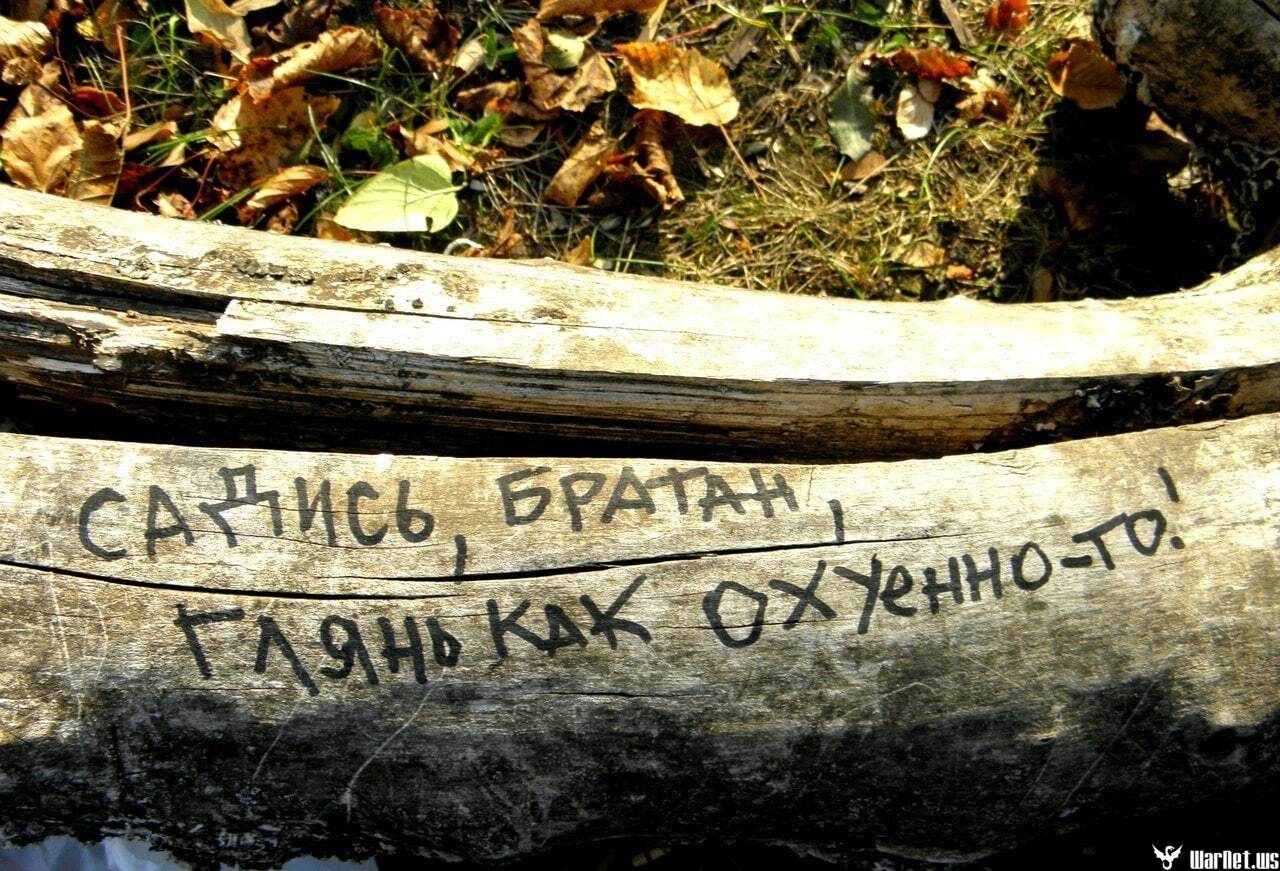 САДИСЬ, БРАТАН,
ГЛЯНЬ КАК ОХУЕННО-ТО!
WarNet.ws